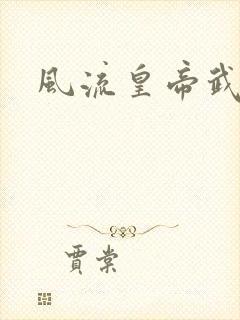 風流皇帝武
賈棠